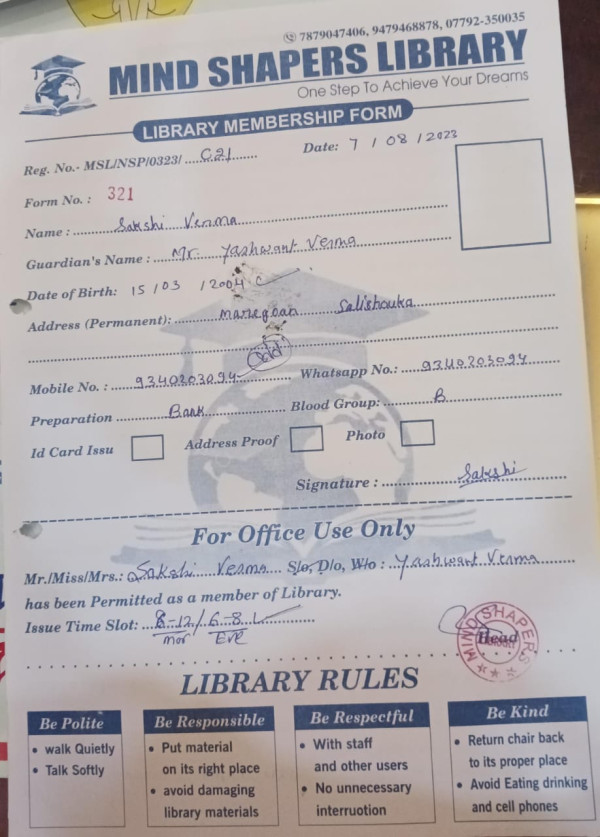 7879047406, 9479468878, 07792-350035
MIND SHAPERS LIBRARY
One Step To Achieve Your Dreams
LIBRARY MEMBERSHIP FORM
Reg. No.- MSL/NSP/0323/ C21 Date: 7 / 08 / 2023
Form No. : 321
Name : Sakshi Verma
Guardian's Name : Mr. Yashwant Verma
Date of Birth: 15 / 03 / 2004
Address (Permanent): Salishouka
Mobile No. : 9340203094 Whatsapp No.: 9340203094
Preparation Bank Blood Group: B
Id Card Issu Address Proof Photo
Signature : Sakshi
For Office Use Only
Mr./Miss/Mrs.: Sakshi Verma S/o, D/o, W/o : Yashwant Verma
has been Permitted as a member of Library.
Issue Time Slot: 8-12 / 6-8
mor Eve
MIND SHAPERS
Head
LIBRARY RULES
Be Polite
• walk Quietly
• Talk Softly
Be Responsible
• Put material
on its right place
• avoid damaging
library materials
Be Respectful
• With staff
and other users
• No unnecessary
interruotion
Be Kind
• Return chair back
to its proper place
• Avoid Eating drinking
and cell phones